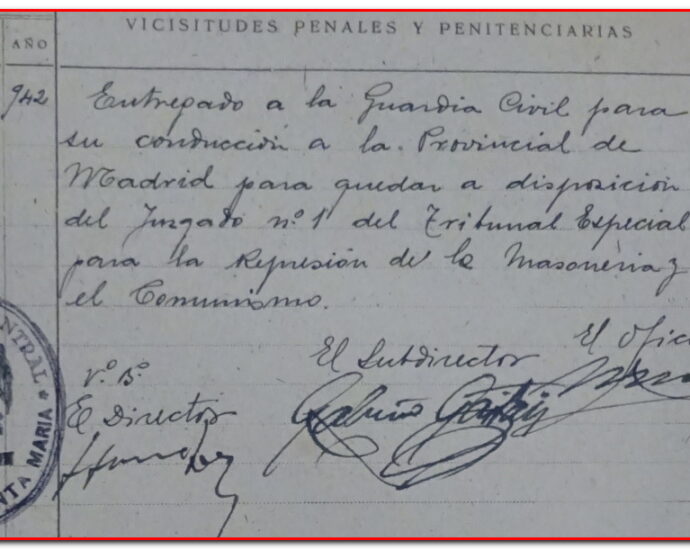 VICISITUDES PENALES Y PENITENCIARIAS
AÑO
942
Entregado a la Guardia Civil para
su conducción a la Provincial de
Madrid para quedar a disposición
del Juzgado nº 1 del Tribunal Especial
para la Represión de la Masoneria y
el Comunismo.
El Subdirector
El Ofici
Vº Bº
El Director
NTRAL
NTA MARIA